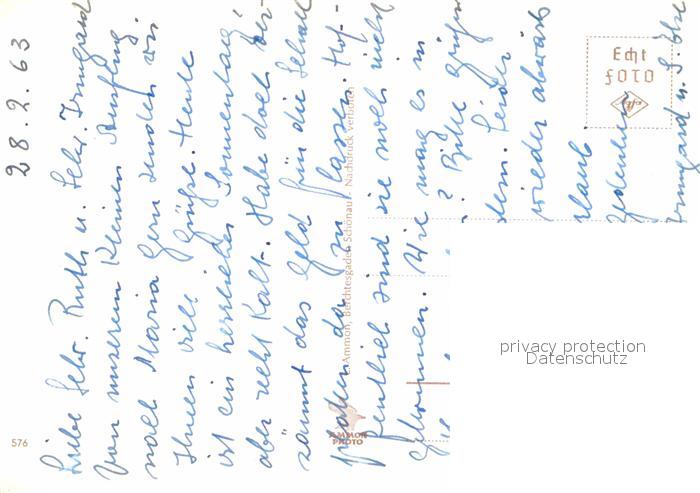 28.2.63
Liebe Schw. Ruth u. Schw. Irmgard
Von unserem kleinen Ausflug
nach Maria Gern senden wir
Ihnen viele Grüße. Heute
ist ein herrlicher Sonnentag
aber recht kalt. Habe doch ver-
säumt das Geld für die Schall
platten da zu lassen. Hof-
fentlich sind sie noch nicht
gekommen. Wie mag es in
? Bitte
Leider
wieder abwärts
Irmgard u. S.
Echt
Foto
Ammon, Berchtesgaden-Schönau · Nachdruck verboten
AMMON
PHOTO
576
privacy protection
Datenschutz